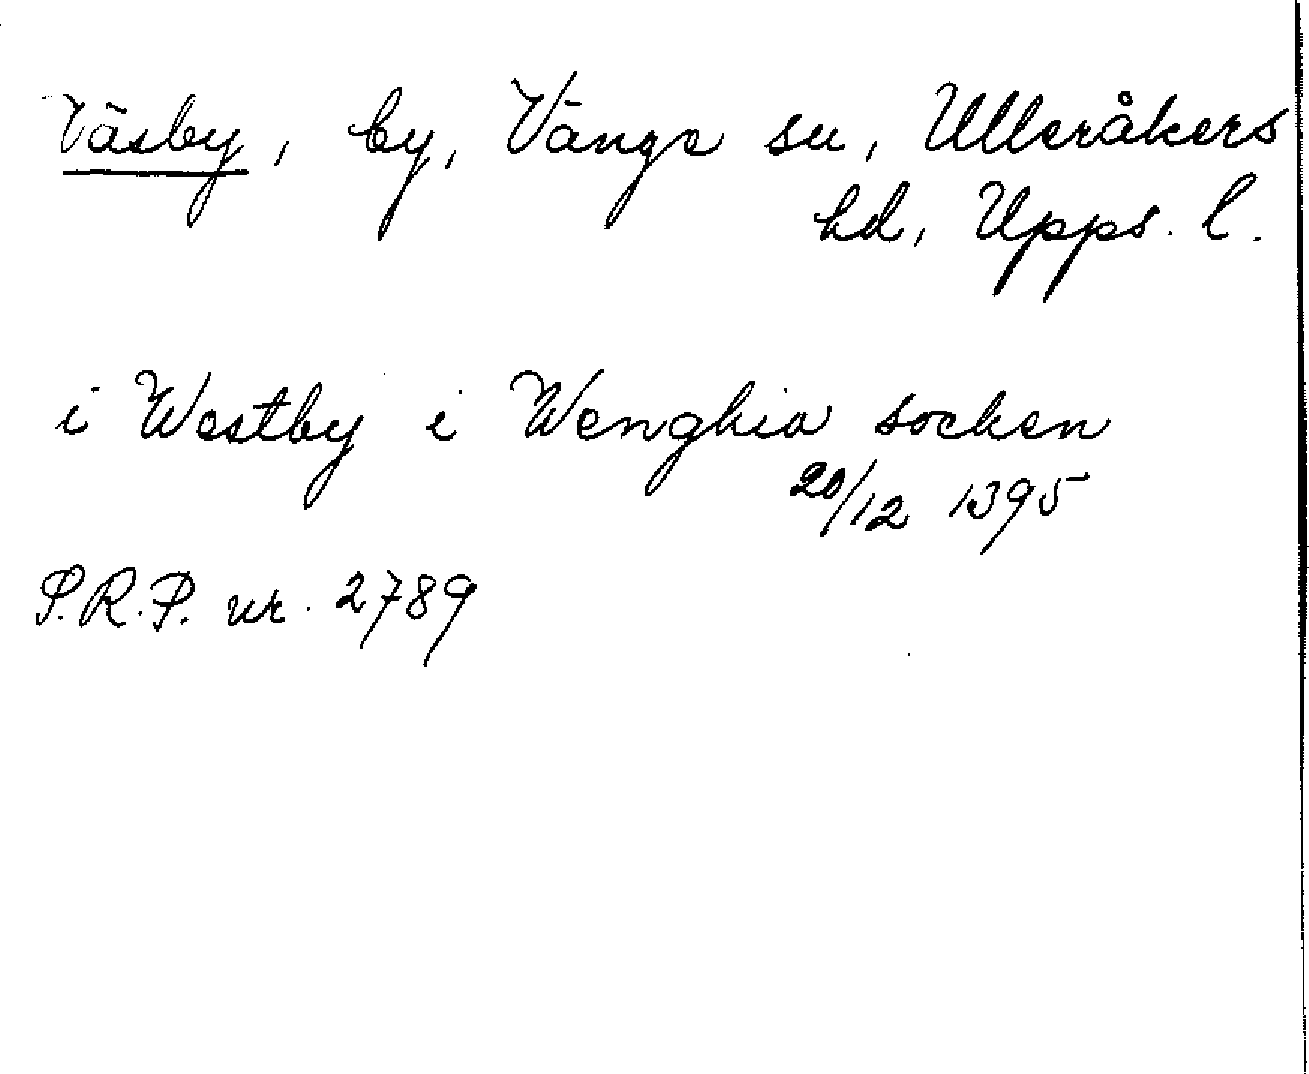 Väsby, by, Vänge sn, Ulleråkers
hd, Upps. l.
i Westby i Wenghia socken
20/12 1395
S.R.P. nr. 2789